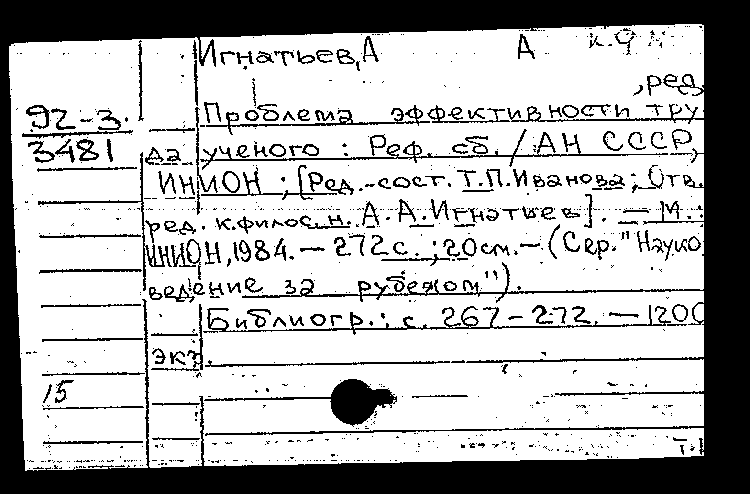 Игнатьев, А А к.ф.н
, ред.
92-3. Проблема эффективности тру-
3481 да ученого : Реф. сб. / АН СССР,
ИНИОН ; [Ред.-сост. Т.П.Иванова; Отв.
ред. к.филос.н. А.А.Игнатьев]. — М. :
ИНИОН, 1984. — 272 с. ; 20 см. — (Сер. "Науко
ведение за рубежом").
Библиогр.: с. 267-272. — 1200
экз.
15